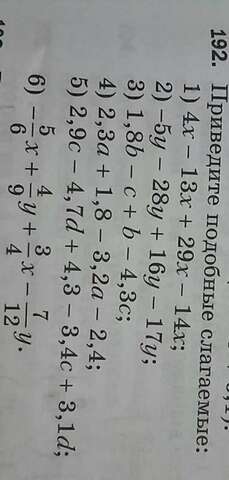 192. Приведите подобные слагаемые:
1) 4x − 13x + 29x − 14x;
2) −5y − 28y + 16y − 17y;
3) 1,8b − c + b − 4,3c;
4) 2,3a + 1,8 − 3,2a − 2,4;
5) 2,9c − 4,7d + 4,3 − 3,4c + 3,1d;
6) −5/6x + 4/9y + 3/4x − 7/12y.